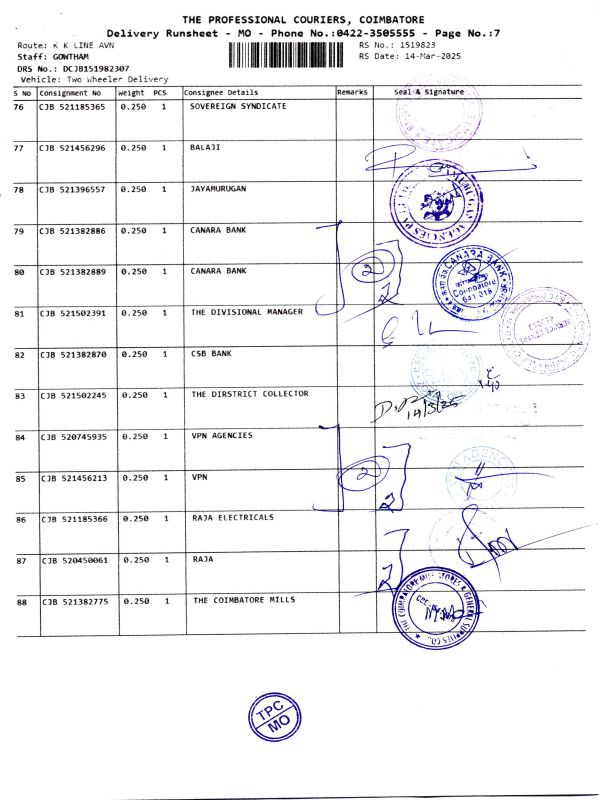 THE PROFESSIONAL COURIERS, COIMBATORE
Delivery Runsheet - MO - Phone No.:0422-3505555 - Page No.:7
Route: K K LINE AVN
RS No.: 1519823
Staff: GOWTHAM
RS Date: 14-Mar-2025
DRS No.: DCJB151982307
Vehicle: Two Wheeler Delivery
S No Consignment No Weight PCS Consignee Details Remarks Seal & Signature
76 CJB 521185365 0.250 1 SOVEREIGN SYNDICATE
77 CJB 521456296 0.250 1 BALAJI
78 CJB 521396557 0.250 1 JAYAMURUGAN
79 CJB 521382886 0.250 1 CANARA BANK
80 CJB 521382889 0.250 1 CANARA BANK
2
CANARA BANK
Coimbatore
641 018
81 CJB 521502391 0.250 1 THE DIVISIONAL MANAGER
82 CJB 521382870 0.250 1 CSB BANK
83 CJB 521502245 0.250 1 THE DIRSTRICT COLLECTOR
14/3/25
84 CJB 520745935 0.250 1 VPN AGENCIES
85 CJB 521456213 0.250 1 VPN
2
86 CJB 521185366 0.250 1 RAJA ELECTRICALS
87 CJB 520450061 0.250 1 RAJA
88 CJB 521382775 0.250 1 THE COIMBATORE MILLS
THE COIMBATORE MILL STORES & GENERAL SUPPLIES CO.,
TPC
MO